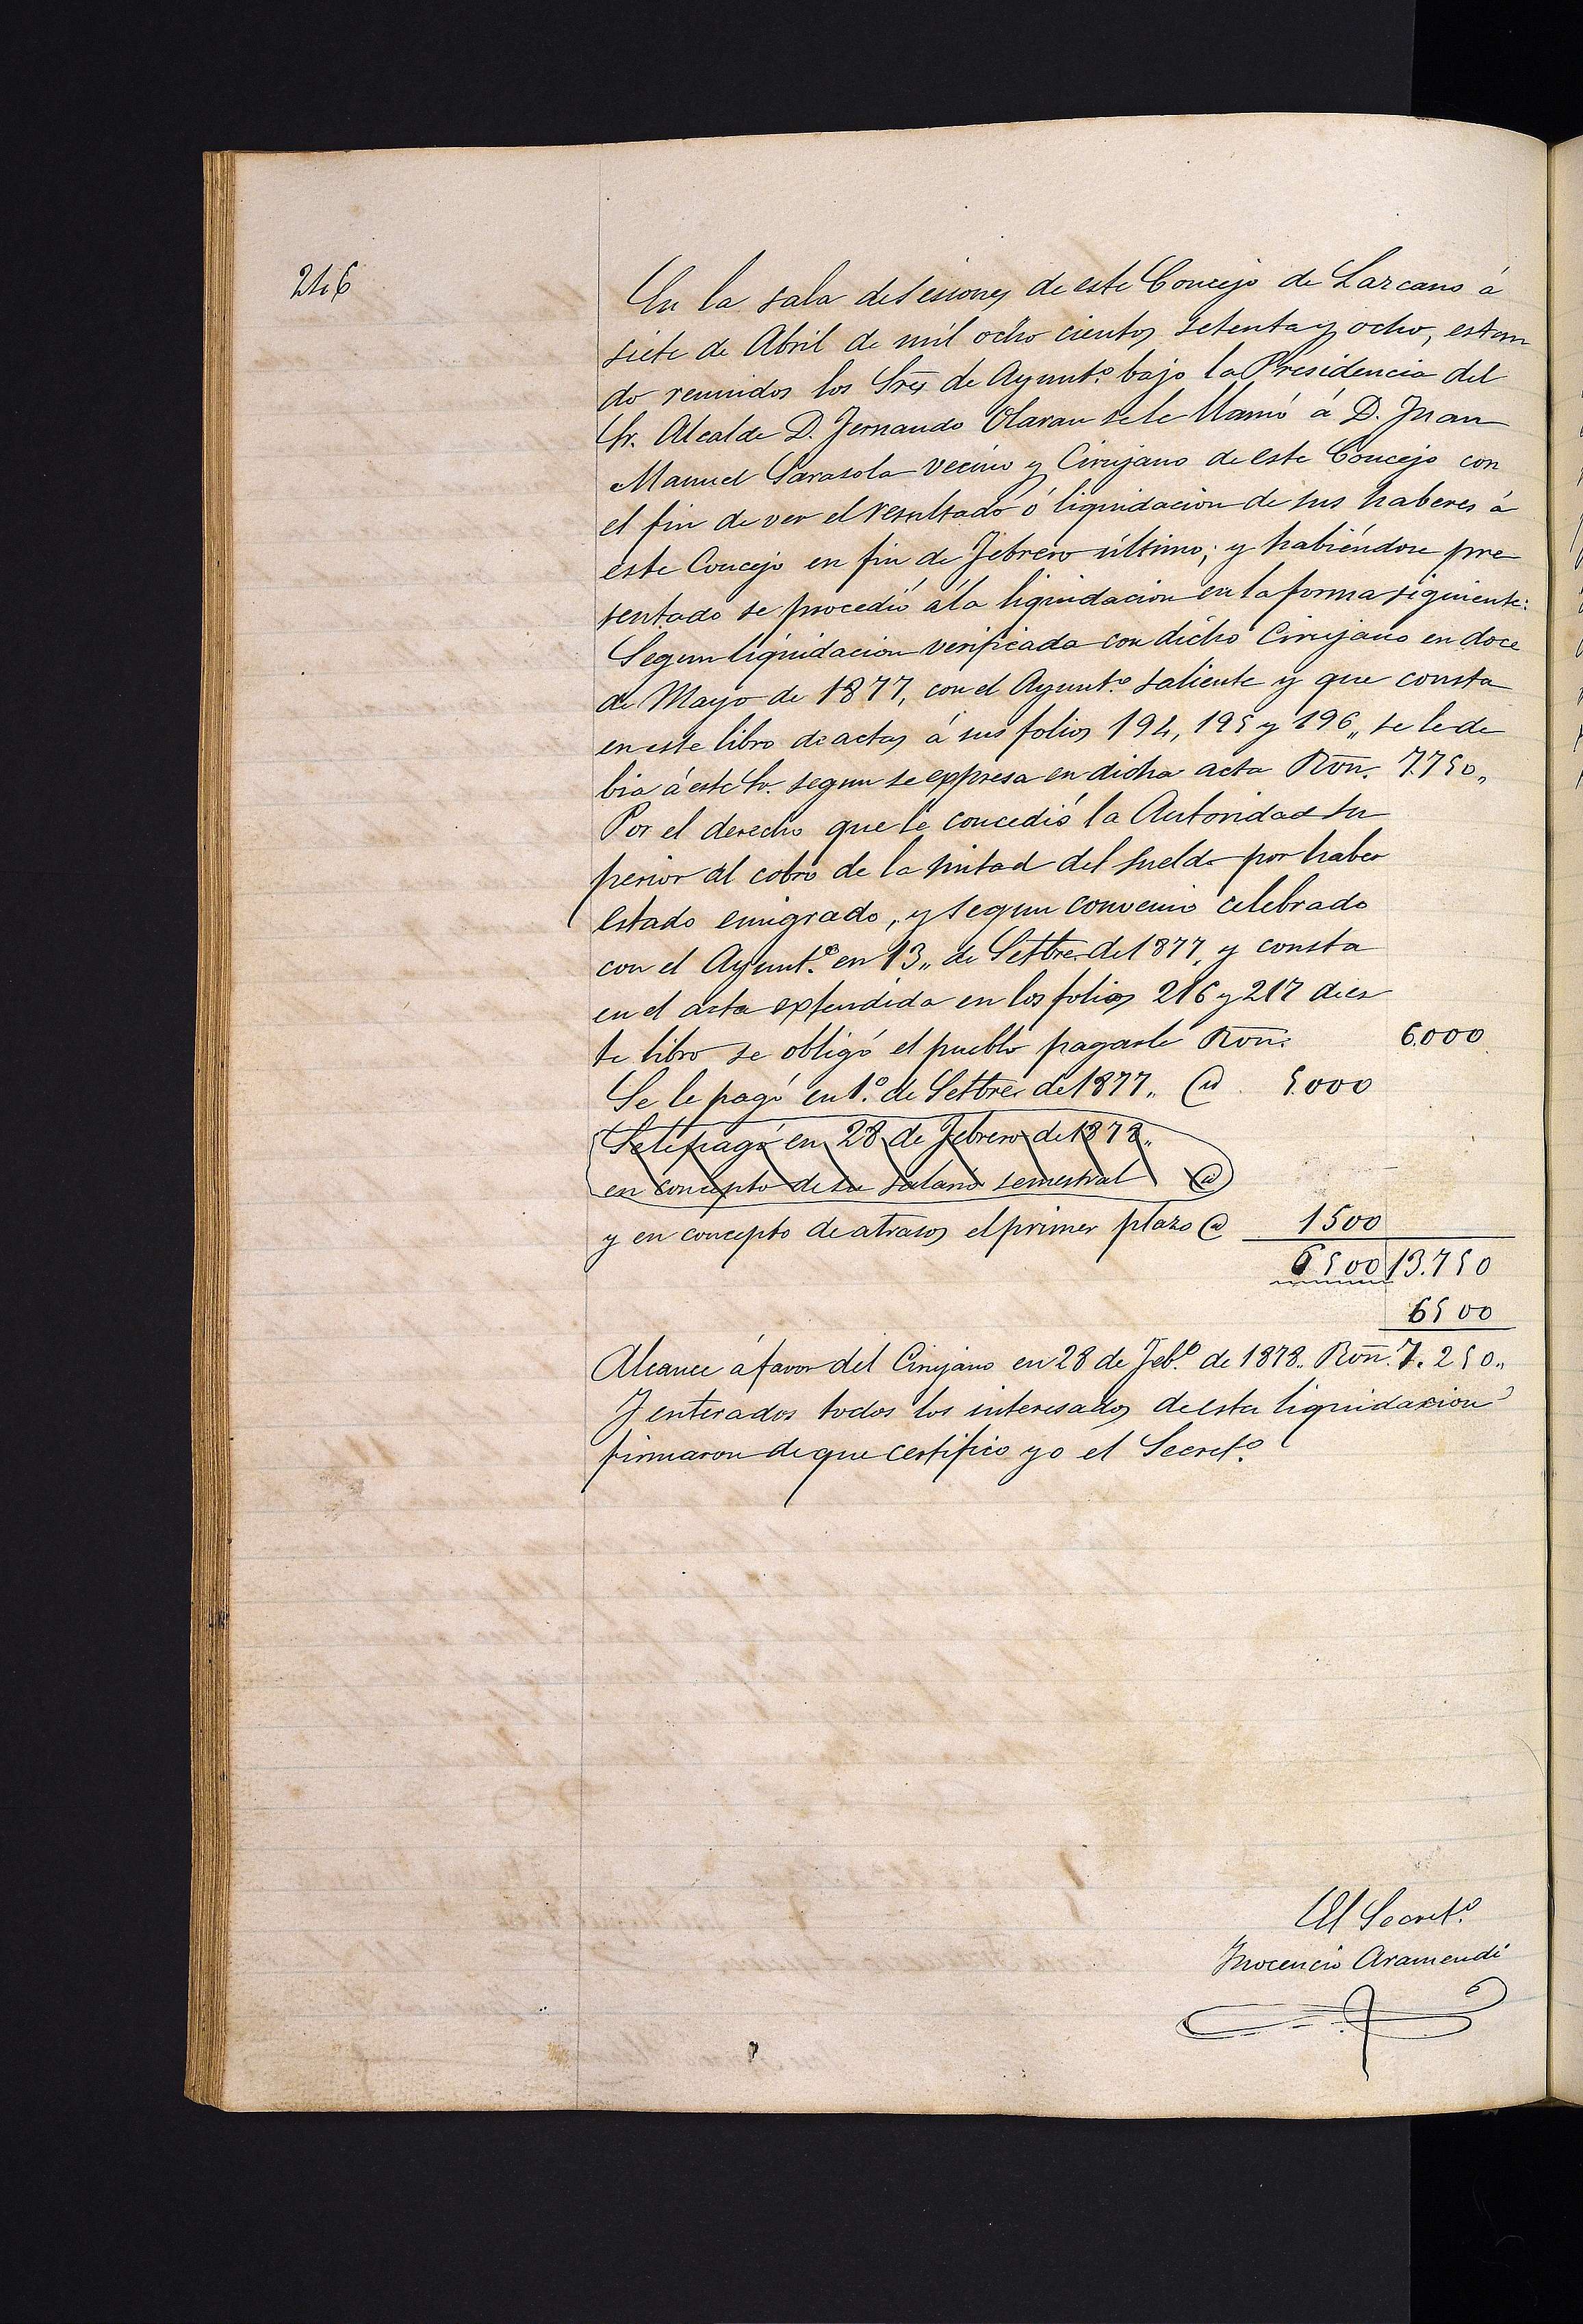 246
En la sala de sesiones de este Concejo de Lazcano á
siete de Abril de mil ocho cientos setenta y ocho, estan
do reunidos los Sres de Ayunt.º bajo la Presidencia del
Sr. Alcalde D. Fernando Olaran se le llamó á D. Juan
Manuel Sarasola vecino y Cirujano de este Concejo con
el fin de ver el resultado ó liquidacion de sus haberes á
este Concejo en fin de Febrero último; y habiéndose pre
sentado se procedió á la liquidacion en la forma siguiente:
Segun liquidacion verificada con dicho Cirujano en doce
de Mayo de 1877, con el Ayunt.º saliente y que consta
en este libro de actas á sus folios 194, 195 y 196,, se le de
bia á este Sr. segun se expresa en dicha acta Ron. 7.750,,
Por el derecho que le concedió la Autoridad su
perior al cobro de la mitad del sueldo por haber
estado emigrado, y segun convenio celebrado
con el Ayunt.º en 13,, de Setbre de 1877, y consta
en el acta extendida en los folios 216 y 217 de es
te libro se obligó el pueblo pagarle Ron. 6.000
Se le pagó en 1.º de Setbre de 1877,, @ 5.000
Se le pagó en 28 de Febrero de 1878,,
en concepto de su salario semestral @
y en concepto de atrasos el primer plazo @ 1500
6500 13.750
6500
Alcance á favor del Cirujano en 28 de Feb.º de 1878,, Ron. 7.250,,
Y enterados todos los interesados de esta liquidacion
firmaron de que certifico yo el Secret.º
El Secret.º
Inocencio Aramendi